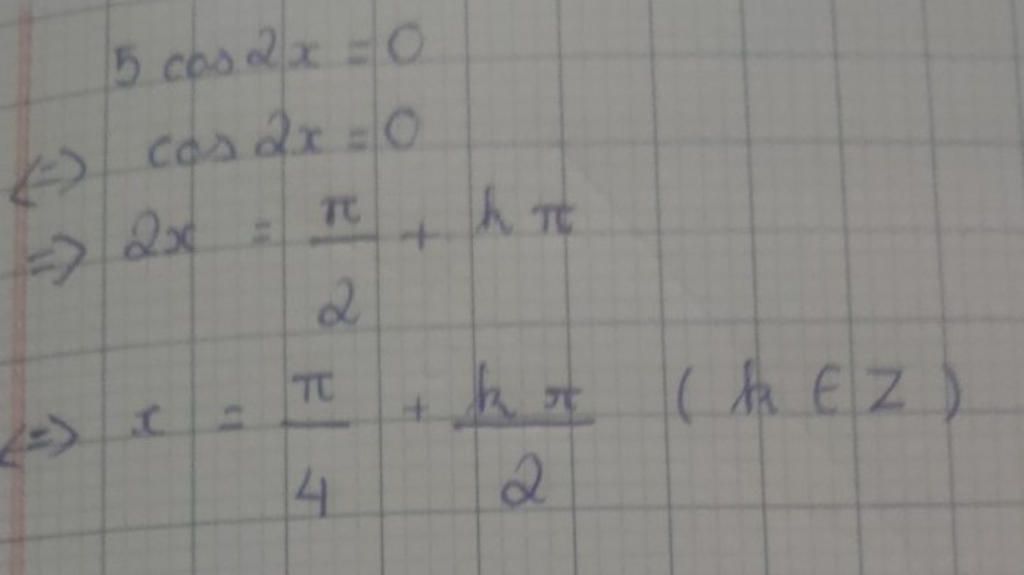 5 cos 2x = 0
<=> cos 2x = 0
=> 2x = π/2 + kπ
<=> x = π/4 + kπ/2 (k ∈ Z)